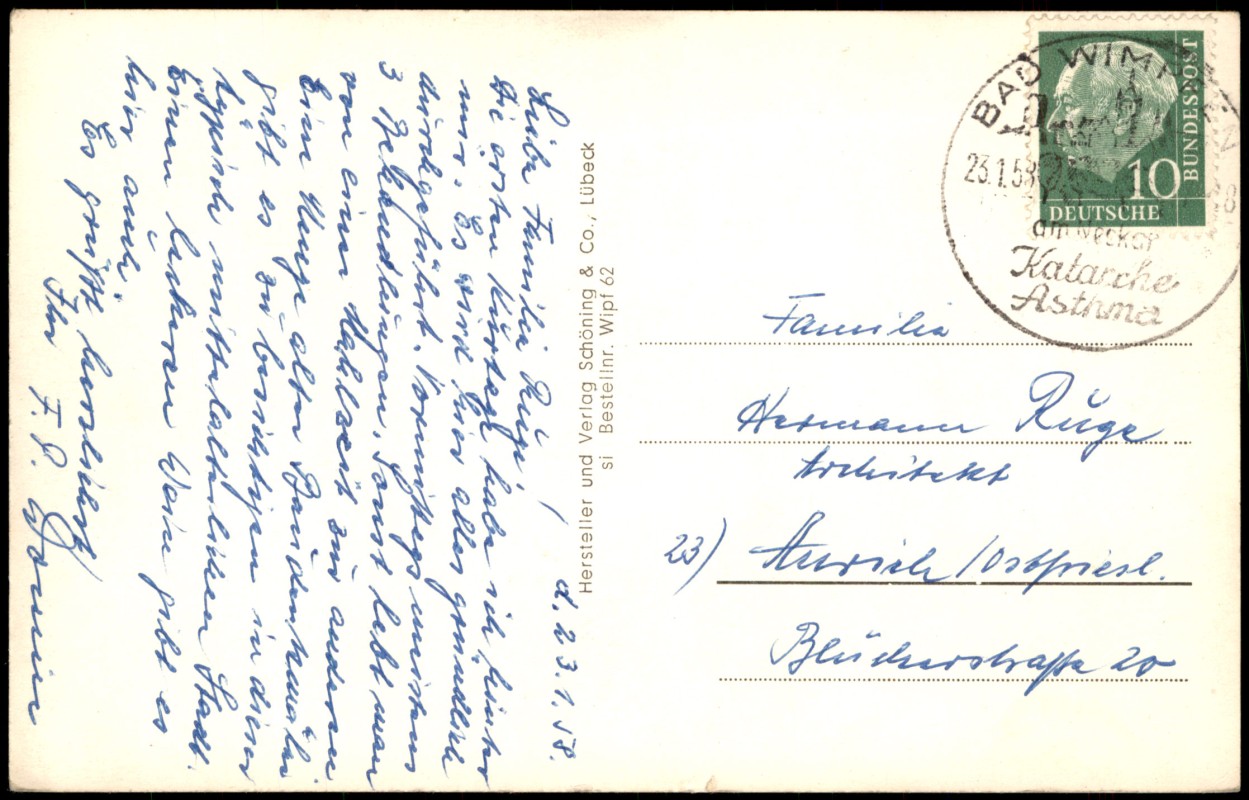 d. 23.1.58.
Liebe Familie Ruge!
Die ersten Kurtage habe ich hinter
mir. Es wird hier alles gründlich
durchgeführt. Vormittags meistens
3 Behandlungen. Sonst lebt man
von einer Mahlzeit zur anderen
Eine Menge alter Baudenkmäler
gibt es zu besichtigen in dieser
typisch mittelalterlichen Stadt.
Einen leckeren Wein gibt es
hier auch.
Es grüßt herzlichst
Ihr
F. P.
Hersteller und Verlag Schöning & Co., Lübeck
si Bestellnr. Wipf 62
BAD WIMPFEN
23.1.58
am Neckar
Katarrhe
Asthma
10
DEUTSCHE
BUNDESPOST
Familie
Hermann Ruge
Architekt
23) Aurich/Ostfriesl.
Blücherstraße 20